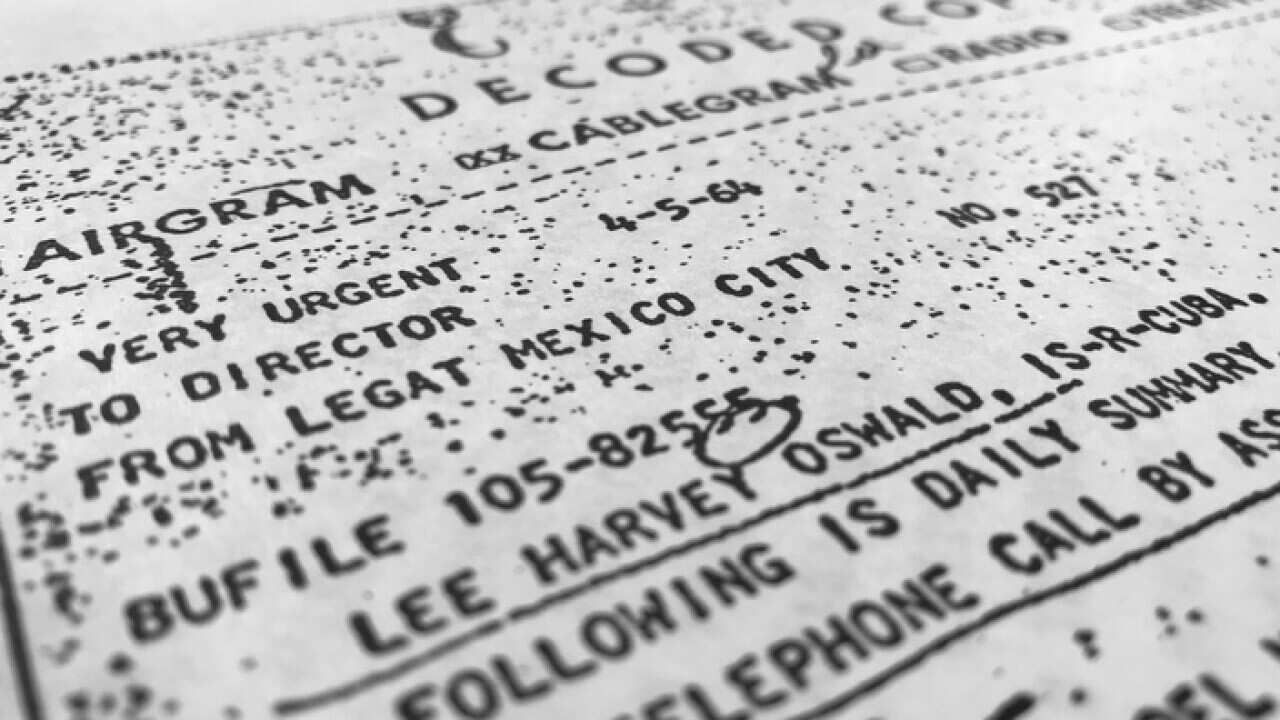 DECODED COP
AIRGRAM XX CABLEGRAM RADIO
4-5-64 NO. 527
VERY URGENT
TO DIRECTOR
FROM LEGAT MEXICO CITY
BUFILE 105-82555
LEE HARVEY OSWALD, IS-R-CUBA.
FOLLOWING IS DAILY SUMMARY.
TELEPHONE CALL BY ASS